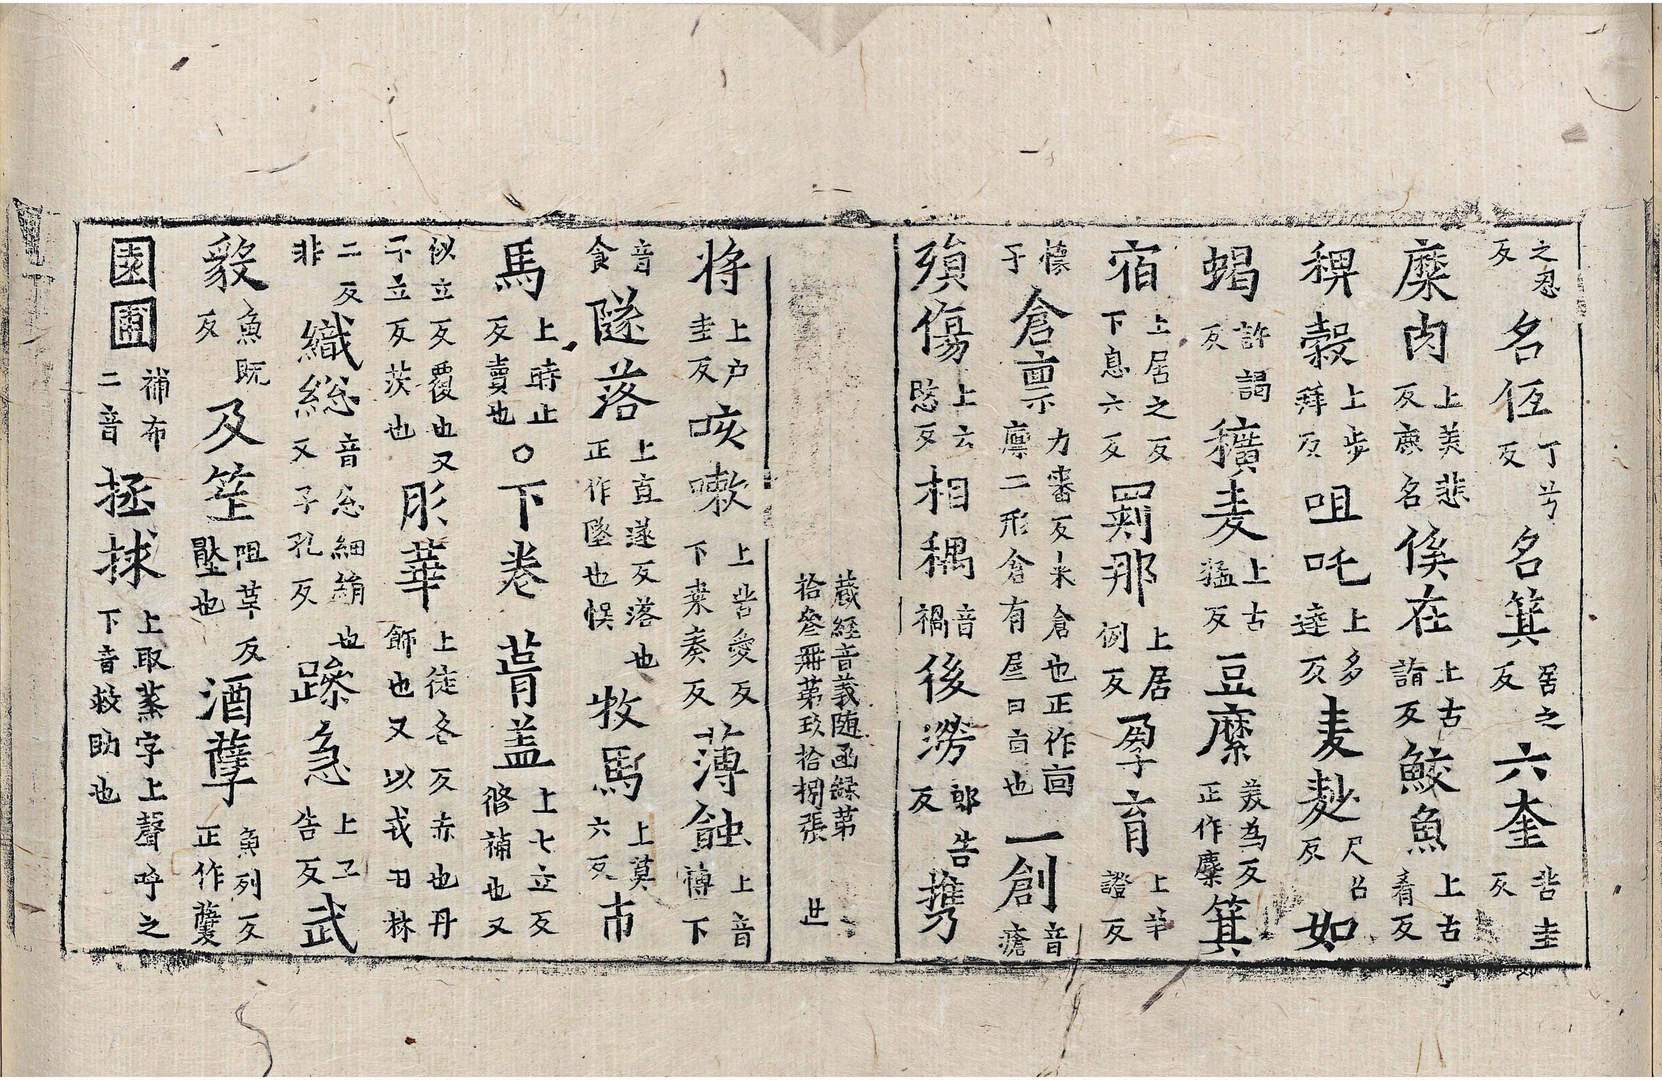 之忍反名仾丁兮反名箕居之反六奎苦圭反
糜肉上美悲反鹿名俟在上古諧反鮫魚上古肴反
稗穀上步拜反咀吒上多達反麦麨尺沼反如
蝎許謁反穬麦上古猛反豆䊳美為反正作糜箕
宿上居之反下息六反罽那上居例反孕育上羊證反
懍子倉禀力審反米倉也正作㐭廩二形倉有屋曰㐭也一創音瘡
殞傷上云愍反相䅥音禍後澇郎告反㩗
藏經音義随函録第
拾參冊第玖拾捌張 廿
將上户圭反咳嗽上苦愛反下桒奏反薄蝕上音慱下
音食隧落上直遂反落也正作墜也悮牧馬上莫六反市
馬上時止反賣也〇下卷葺盖上七立反修補也又
似立反覆也又子立反茨也彤華上徒冬反赤也丹飾也又以戎丑林
二反非織総音忩細絹也又子孔反躁急上子告反武
毅魚既反及笮咀草反壓也酒孽魚列反正作糱
園圃補布二音拯救上取蒸字上聲呼之下音救助也